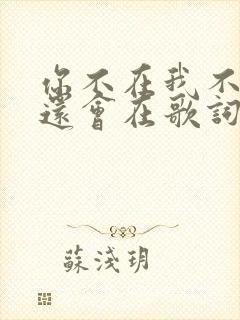 你不在我不
還會在歌詞
蘇淺玥